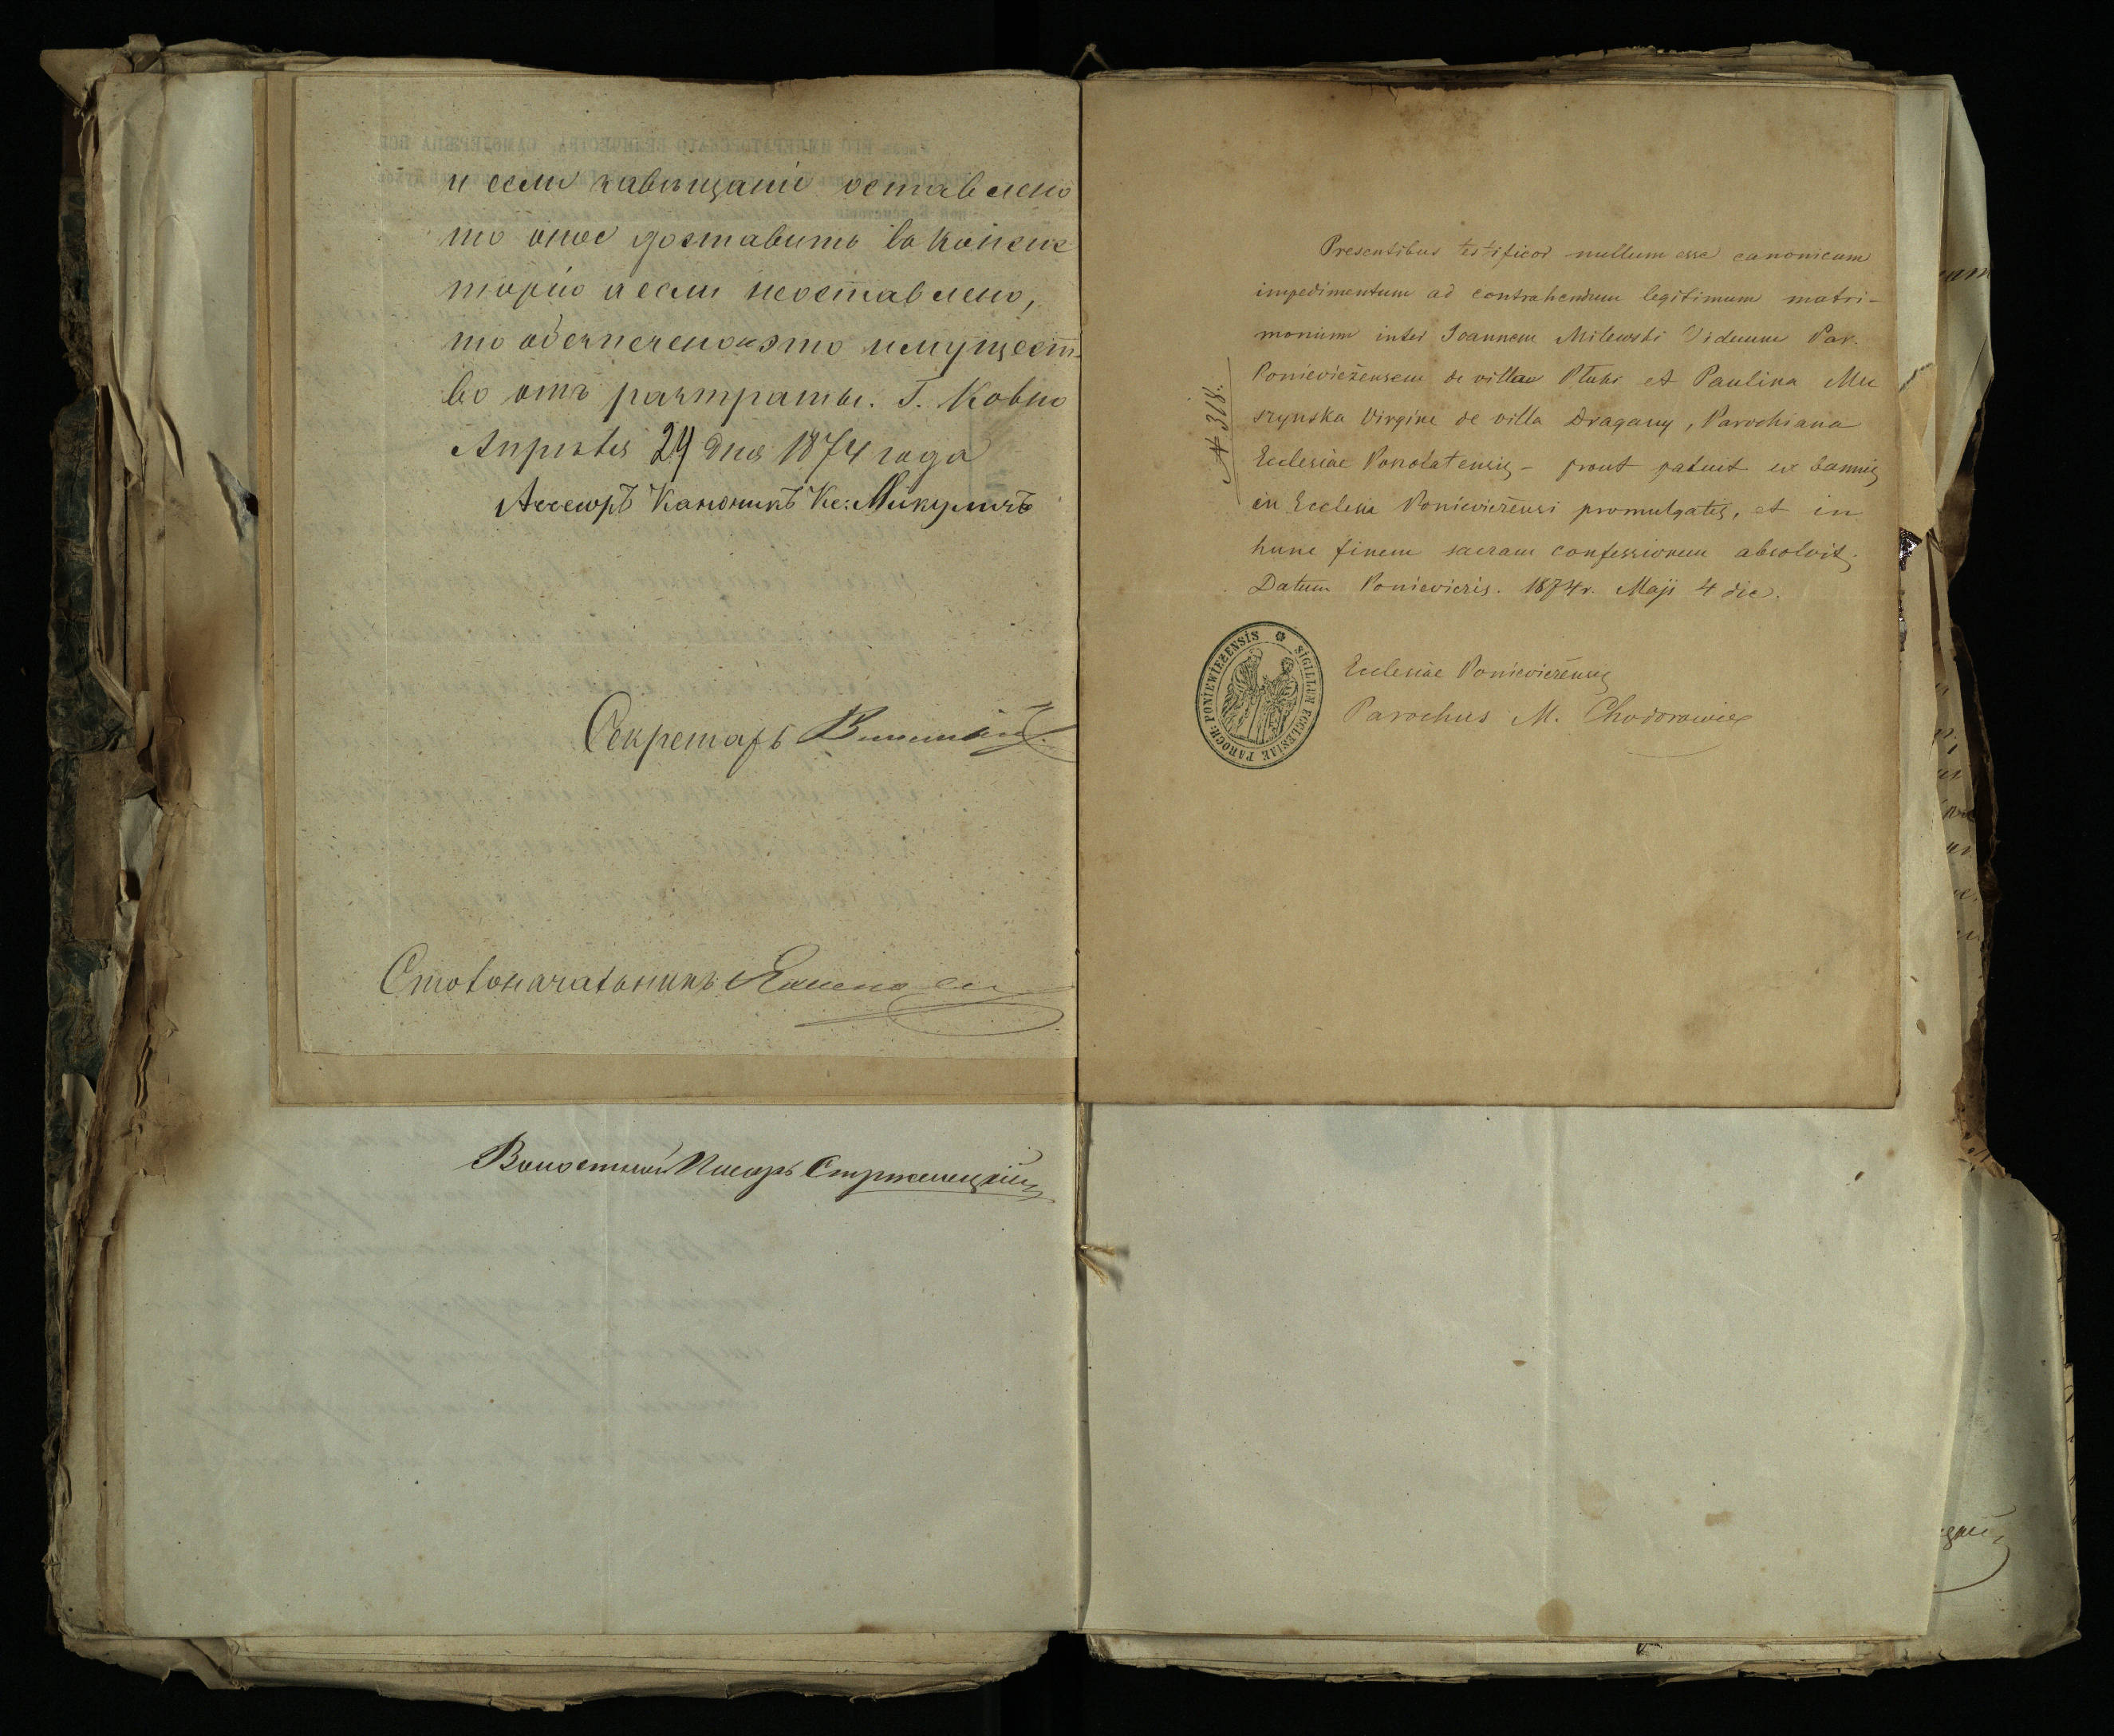 и если завѣщаніе оставлено
то оное доставить въ Консис
торію а если неоставлено,
то обезпечено это имущест-
во отъ растраты. Г. Ковно
Апрѣля 29 дня 1874 года
Ассесоръ Каноникъ Кс: Микуличъ
Секретарь
Столоначальникъ
Волостной Писарь Стржелецкій
№ 318.
Presentibus testificor nullum esse canonicum
impedimentum ad contrahendum legitimum matri-
monium inter Joannem Milewski Viduum Par.
Poniewiežensem de villae Ptaki et Paulina Mu
szynska Virgine de villa Dragany, Parochiana
Ecclesiae Ponolatensis - prout patuit ex bannis
in Ecclesia Poniewiežensi promulgatis, et in
hunc finem sacram confessionem absolvit.
Datum Poniewiezis. 1874 r. Maji 4 die.
SIGILLUM ECCLESIAE PAROCH: PONIEWIEŻENSIS
Ecclesiae Poniewiežensis
Parochus M. Chodorowicz